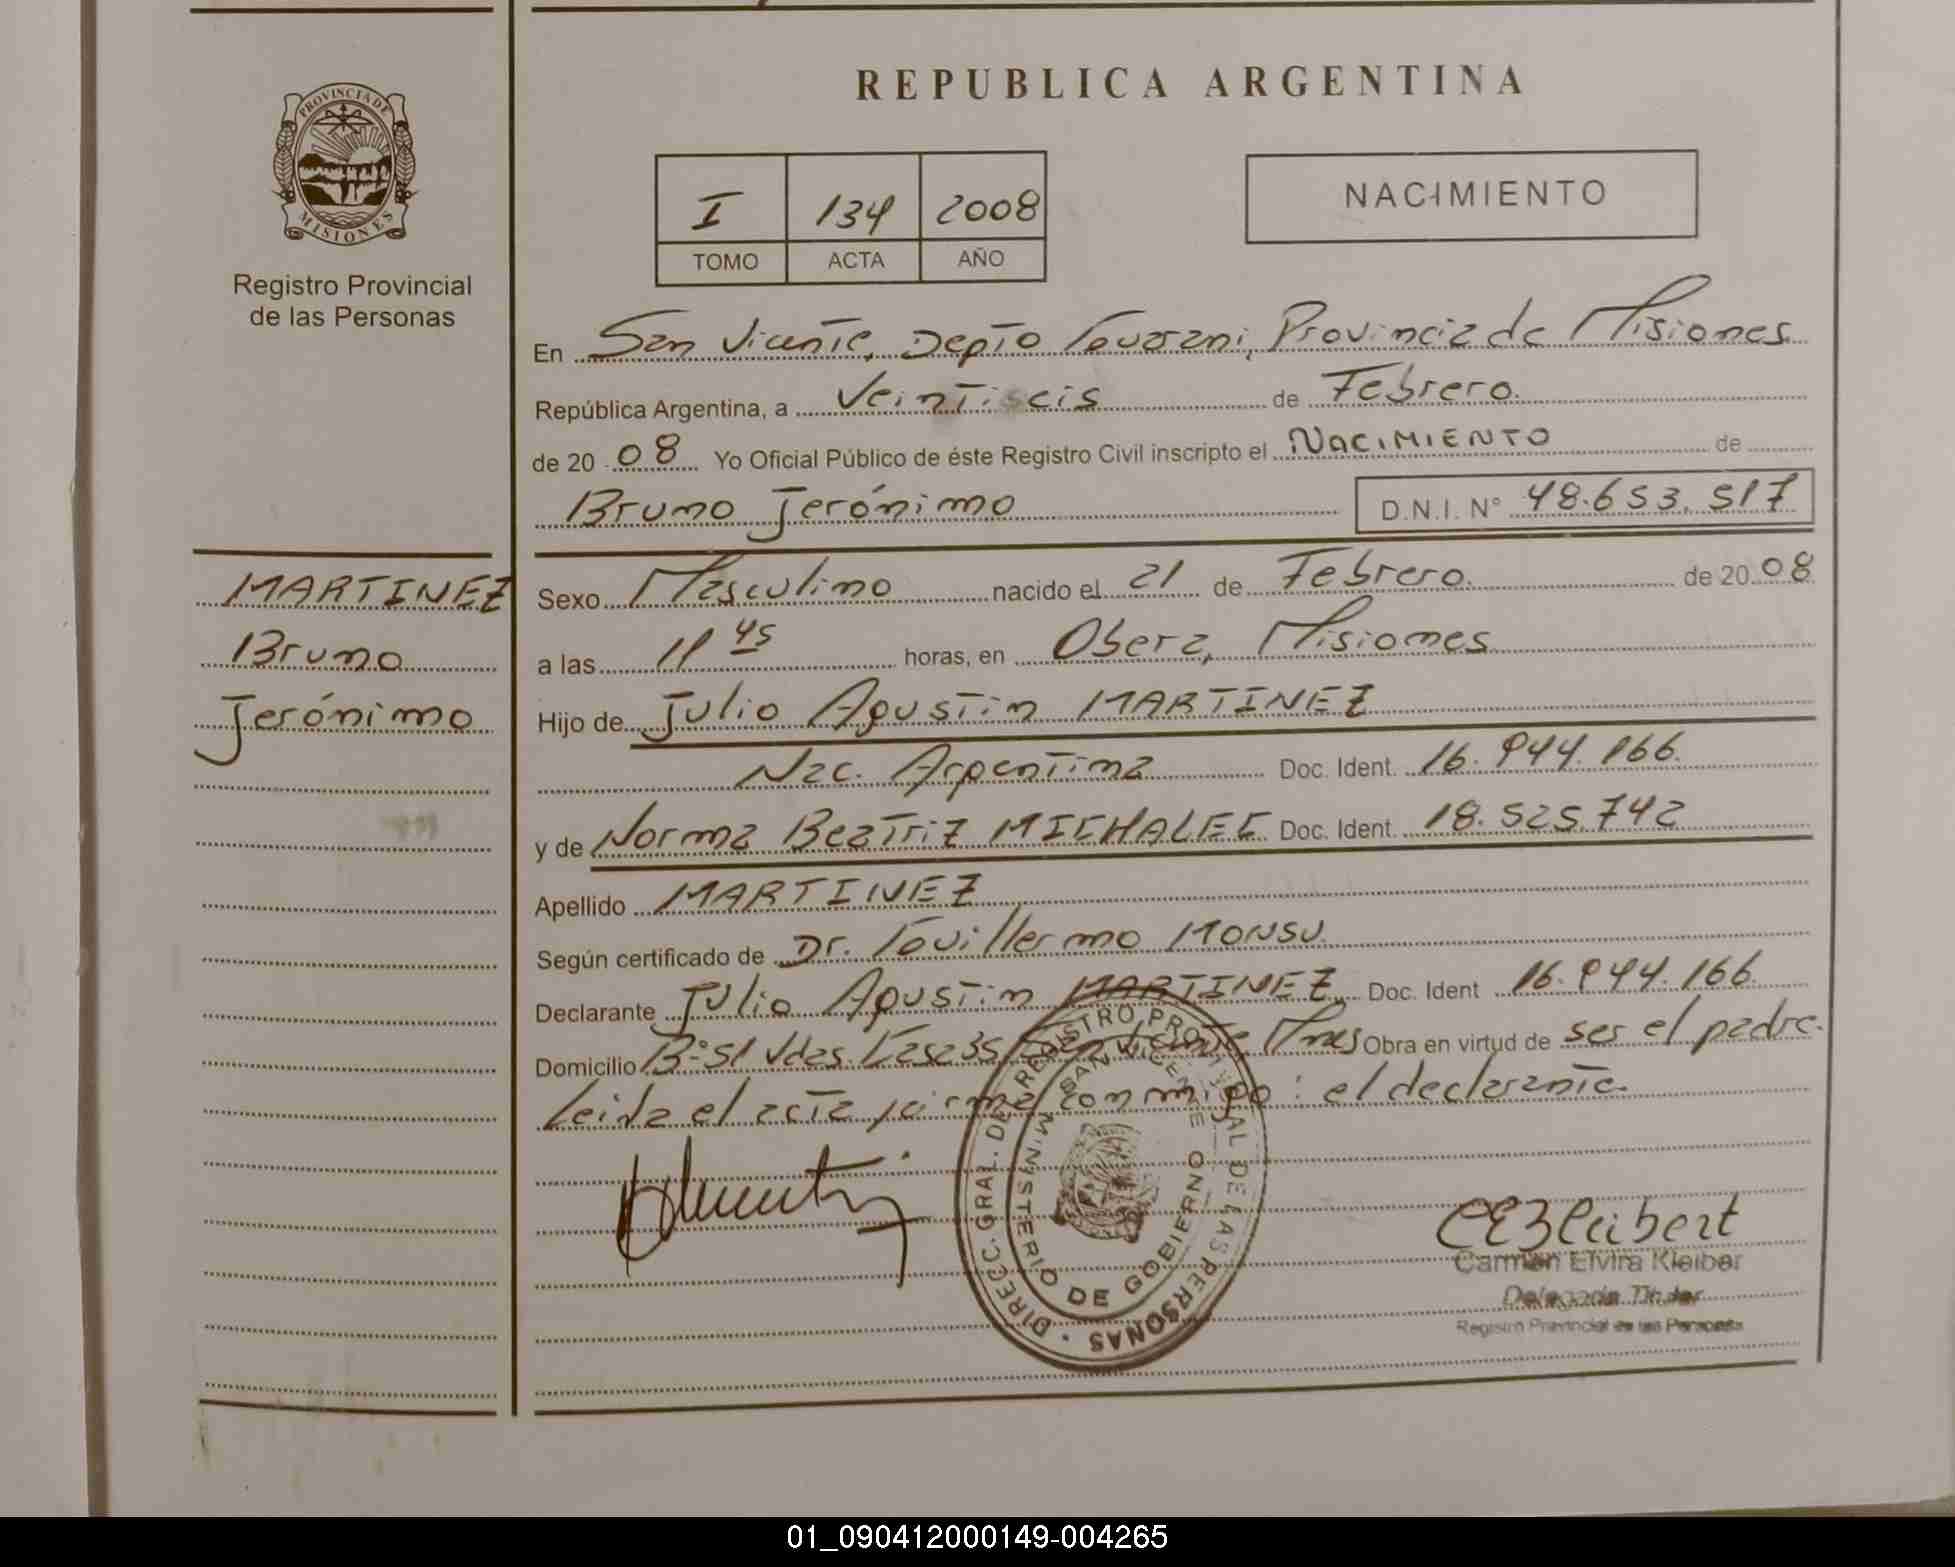 REPUBLICA ARGENTINA
PROVINCIA DE
MISIONES
Registro Provincial
de las Personas
I 134 2008
TOMO ACTA AÑO
NACIMIENTO
En San Vicente, Depto Guarani, Provincia de Misiones
República Argentina, a Veintiseis de Febrero.
de 20 08 Yo Oficial Público de éste Registro Civil inscripto el NaCIMIENTO de
Bruno Jerónimo D.N.I. N° 48.653.517
MARTINEZ
Bruno
Jerónimo
Sexo Masculino nacido el 21 de Febrero. de 20 08
a las 11 45 horas, en Obera, Misiones
Hijo de Julio Agustin MARTINEZ
Nac. Argentina Doc. Ident. 16.944.166.
y de Norma Beatriz MICHALEC Doc. Ident. 18.525.742
Apellido MARTINEZ
Según certificado de Dr. Guillermo MONSU.
Declarante Julio Agustin MARTINEZ Doc. Ident 16.944.166.
Domicilio B° 51 Vdas. Casa 35 San Vicente Mnes Obra en virtud de ser el padre.
Leida el acta firma conmigo: el declarante.
DIRECC. GRAL. DE REGISTRO PROVINCIAL DE LAS PERSONAS
SAN VICENTE
MINISTERIO DE GOBIERNO
Carmen Elvira Kleiber
Delegada Titular
Registro Provincial de las Personas
01_090412000149-004265